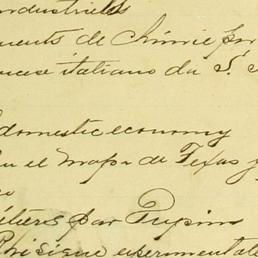 ndustrieles
ments de Chimie par
ncese italiano da S. S
domestic economy
en el mapa de Texas y
étiers par Pupin
Phisique experimentale